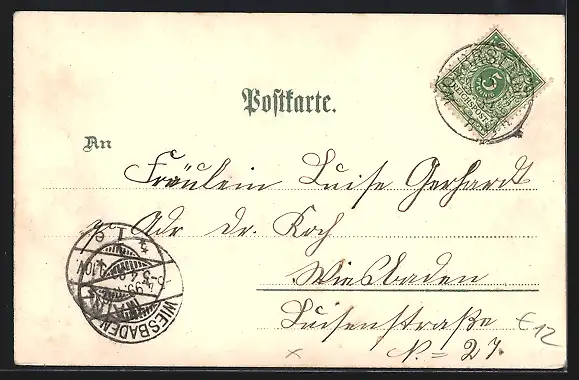 Postkarte.
5
An
Fräulein Luise Gerhardt
Adr Dr. Koch
Wiesbaden
Luisenstraße
N = 27.
WIESBADEN
€ 12